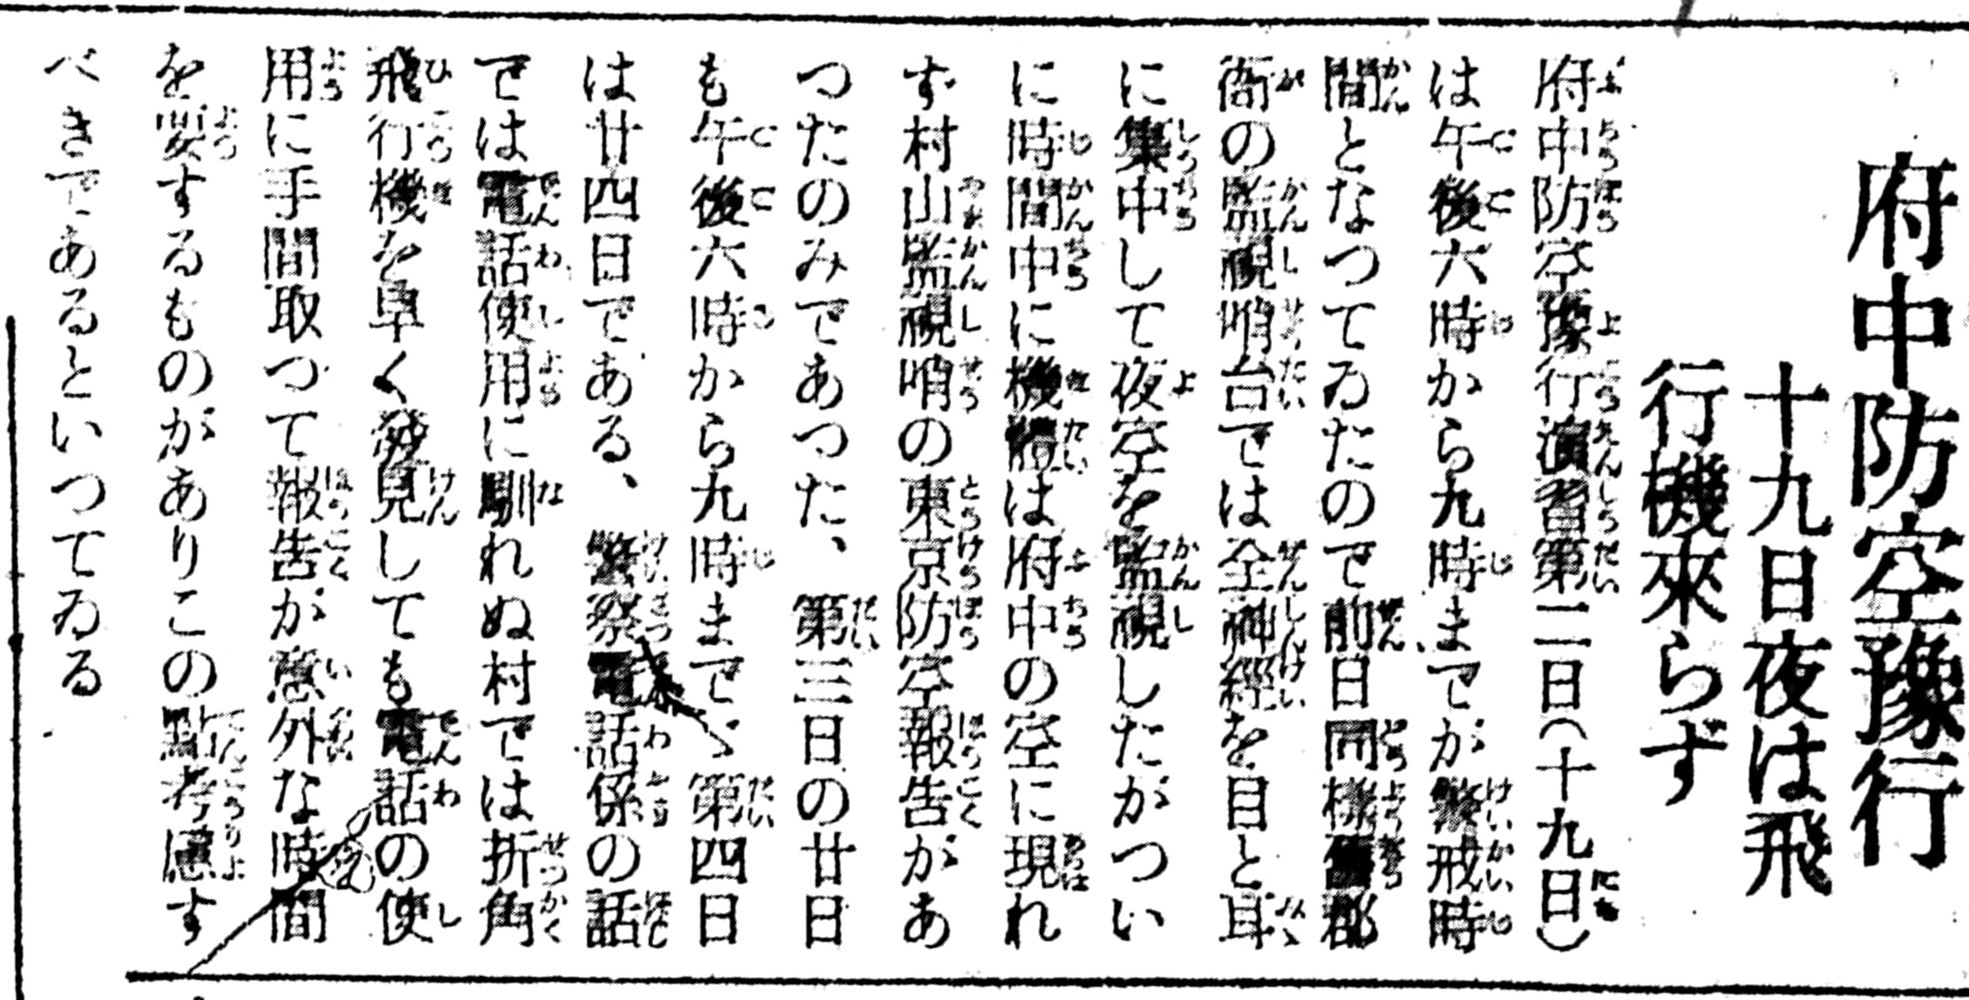 府中防空豫行
十九日夜は飛
行機來らず
府中防空豫行演習第二日(十九日)
は午後六時から九時までが警戒時
間となつてゐたので前日同樣郡
衙の監視哨台では全神經を目と耳
に集中して夜空を監視したがつい
に時間中に機體は府中の空に現れ
ず村山監視哨の東京防空報告があ
つたのみであつた、第三日の廿日
も午後六時から九時まで、第四日
は廿四日である、警察電話係の話
では電話使用に馴れぬ村では折角
飛行機を早く發見しても電話の使
用に手間取つて報告が意外な時間
を要するものがありこの點考慮す
べきであるといつてゐる